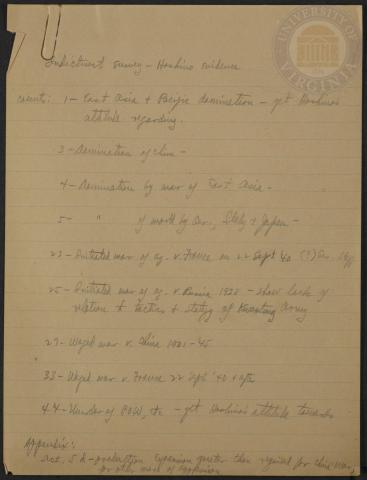 UNIVERSITY OF VIRGINIA
Indictment survey - Hoshino evidence
counts: 1 - East Asia & Pacific domination - get Hoshino's
attitude regarding.
3 - Domination of China -
4 - Domination by war of East Asia -
5 - " of world by Ger., Italy & Japan -
23 - Initiated war of ag. v. France on 22 Sept 40 (?)
25 - Initiated war of ag. v. Russia 1938 - show lack of
relation to tactics & strategy of Kwantung Army
27 - Waged war v. China 1931-'45
33 - Waged war v. France 22 Sept '40 & after
44 - Murder of POW, etc - get Hoshino's attitude towards
Appendix:
Act. 5 A - production expansion greater than required for China war,
for other wars of aggression